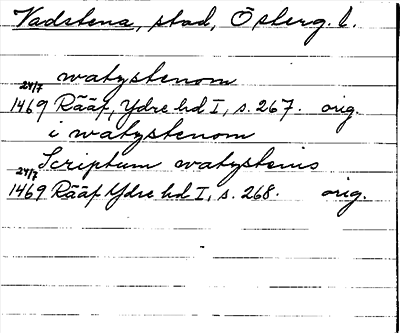 Vadstena, stad, Österg. l.
watystenom
24/7 1469 Rääf, Ydre hd I, s. 267. orig.
i watystenom
Scriptum watystenis
24/7 1469 Rääf Ydre hd I, s. 268. orig.